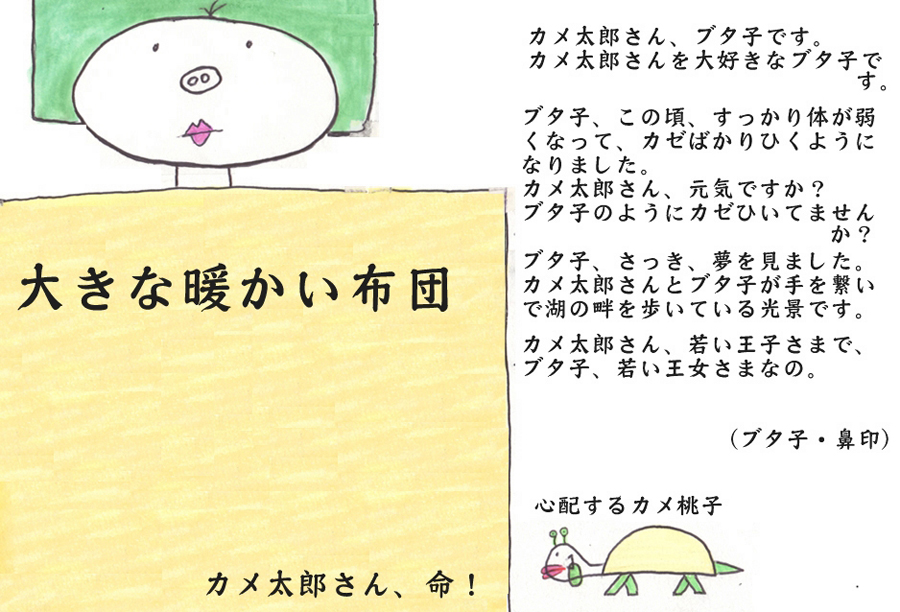 大きな暖かい布団
カメ太郎さん、命！
カメ太郎さん、ブタ子です。
カメ太郎さんを大好きなブタ子で
す。
ブタ子、この頃、すっかり体が弱
くなって、カゼばかりひくように
なりました。
カメ太郎さん、元気ですか？
ブタ子のようにカゼひいてません
か？
ブタ子、さっき、夢を見ました。
カメ太郎さんとブタ子が手を繋い
で湖の畔を歩いている光景です。
カメ太郎さん、若い王子さまで、
ブタ子、若い王女さまなの。
（ブタ子・鼻印）
心配するカメ桃子